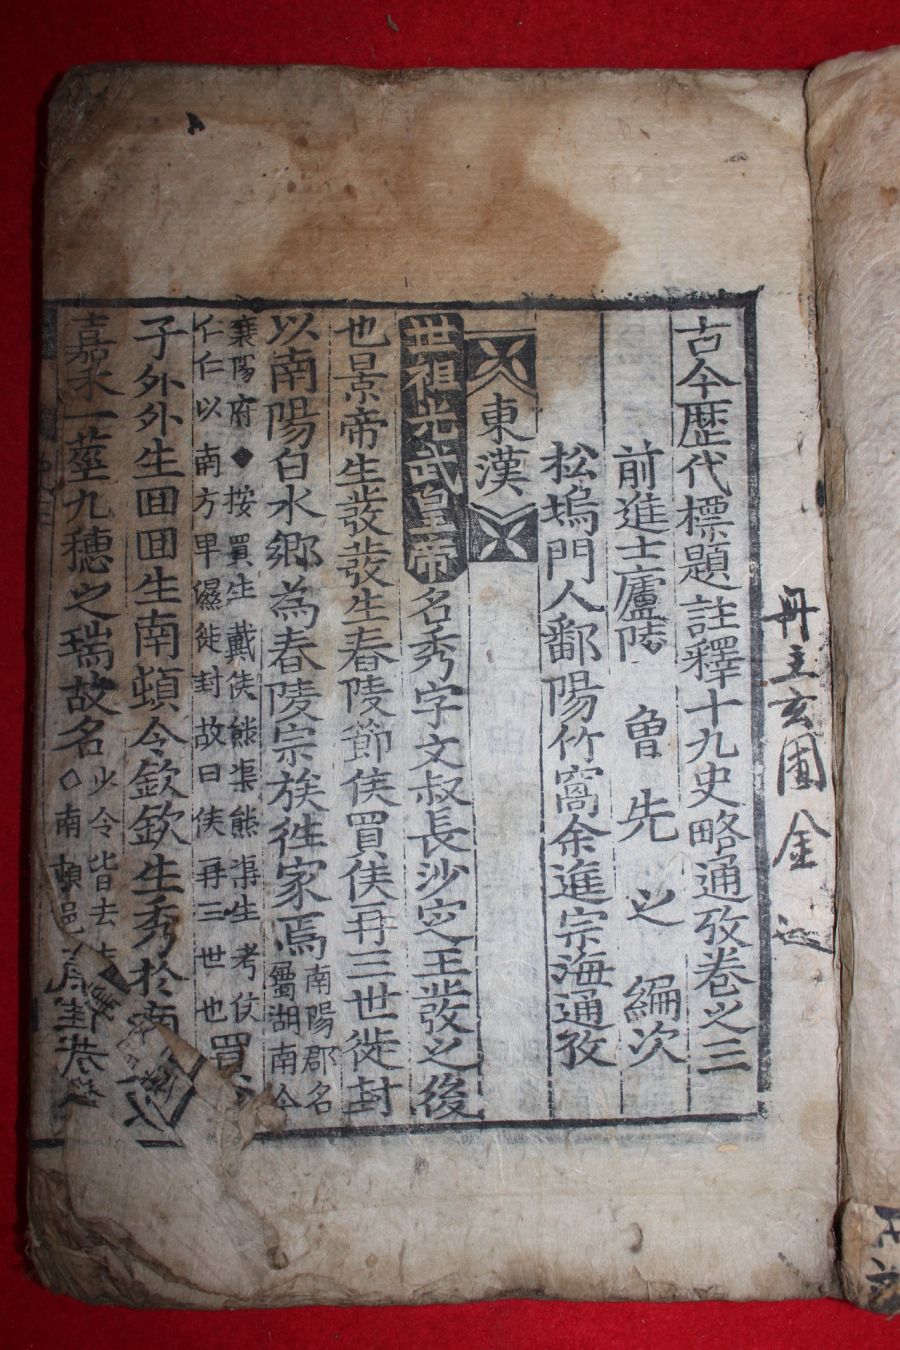 冊主玄圃金
古今歷代標題註釋十九史略通攷卷之三
前進士廬陵 曾先之 編次
松塢門人鄱陽竹窩余進宗海通攷
東漢
世祖光武皇帝名秀字文叔長沙定王發之後
也景帝生發發生舂陵節侯買侯再三世徙封
以南陽白水鄉為舂陵宗族徃家焉南陽郡名
屬湖南今
襄陽府◆按買生戴侯熊渠熊渠生考仅
仁仁以南方卑濕徙封故曰侯再三世也買
子外外生囬囬生南頓令欽欽生秀於南
嘉禾一莖九穗之瑞故名
少令皆去
○南頓邑